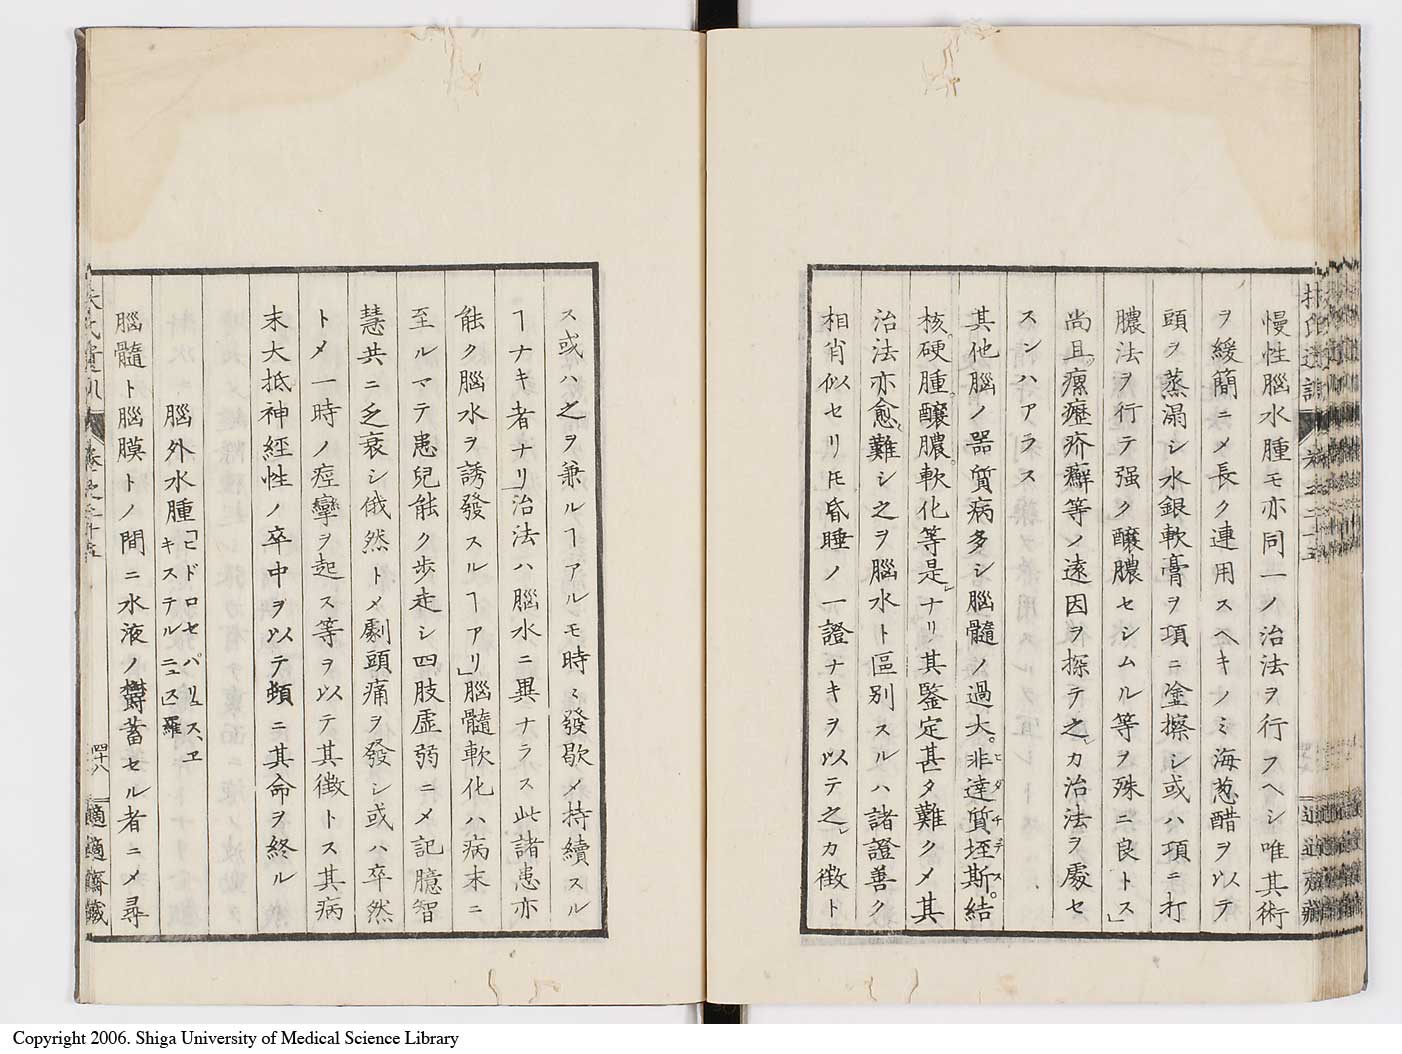 慢性腦水腫モ亦同一ノ治法ヲ行フヘシ唯其術
ヲ緩簡ニメ長ク連用スヘキノミ海葱醋ヲ以テ
頭ヲ蒸溻シ水銀軟膏ヲ項ニ塗擦シ或ハ項ニ打
膿法ヲ行テ强ク釀膿セシムル等ヲ殊ニ良トス」
尚且ツ瘰癧疥癬等ノ遠因ヲ探テ之レカ治法ヲ處セ
スンハアラス
其他腦ノ器質病多シ腦髓ノ過大。非達質垤斯。結
ヒダチデス
核。硬腫。釀膿。軟化等是レナリ其鑒定甚タ難クメ其
治法亦愈ヘ難シ之ヲ腦水ト區別スルハ諸證善ク
相肖似セリ𪜈昏睡ノ一證ナキヲ以テ之レカ徴ト
ス或ハ之ヲ兼ルヿアルモ時々發歇メ持續スル
ヿナキ者ナリ」治法ハ腦水ニ異ナラス此諸患亦
能ク腦水ヲ誘發スルヿアリ」腦髓軟化ハ病末ニ
至ルマテ患兒能ク歩走シ四肢虛弱ニメ記臆智
慧共ニ乏衰シ俄然トメ劇頭痛ヲ發シ或ハ卒然
トメ一時ノ痙攣ヲ起ス等ヲ以テ其徴トス其病
末大抵神經性ノ卒中ヲ以テ頓ニ其命ヲ終ル
腦外水腫「ヒドロセパリュス、ヱ
キステルニュス」羅
腦髓ト腦膜トノ間ニ水液ノ欝蓄セル者ニメ尋
扶氏遺訓
卷之二十五
四十八
適適齋藏